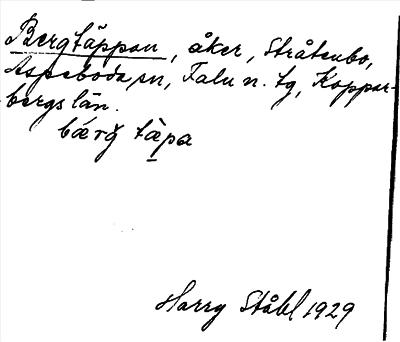 Bergtäppan, åker, Stråtenbo,
Aspeboda sn, Falu n. tg, Koppar-
bergs län.
bǽrǧ tàpa
Harry Ståhl 1929